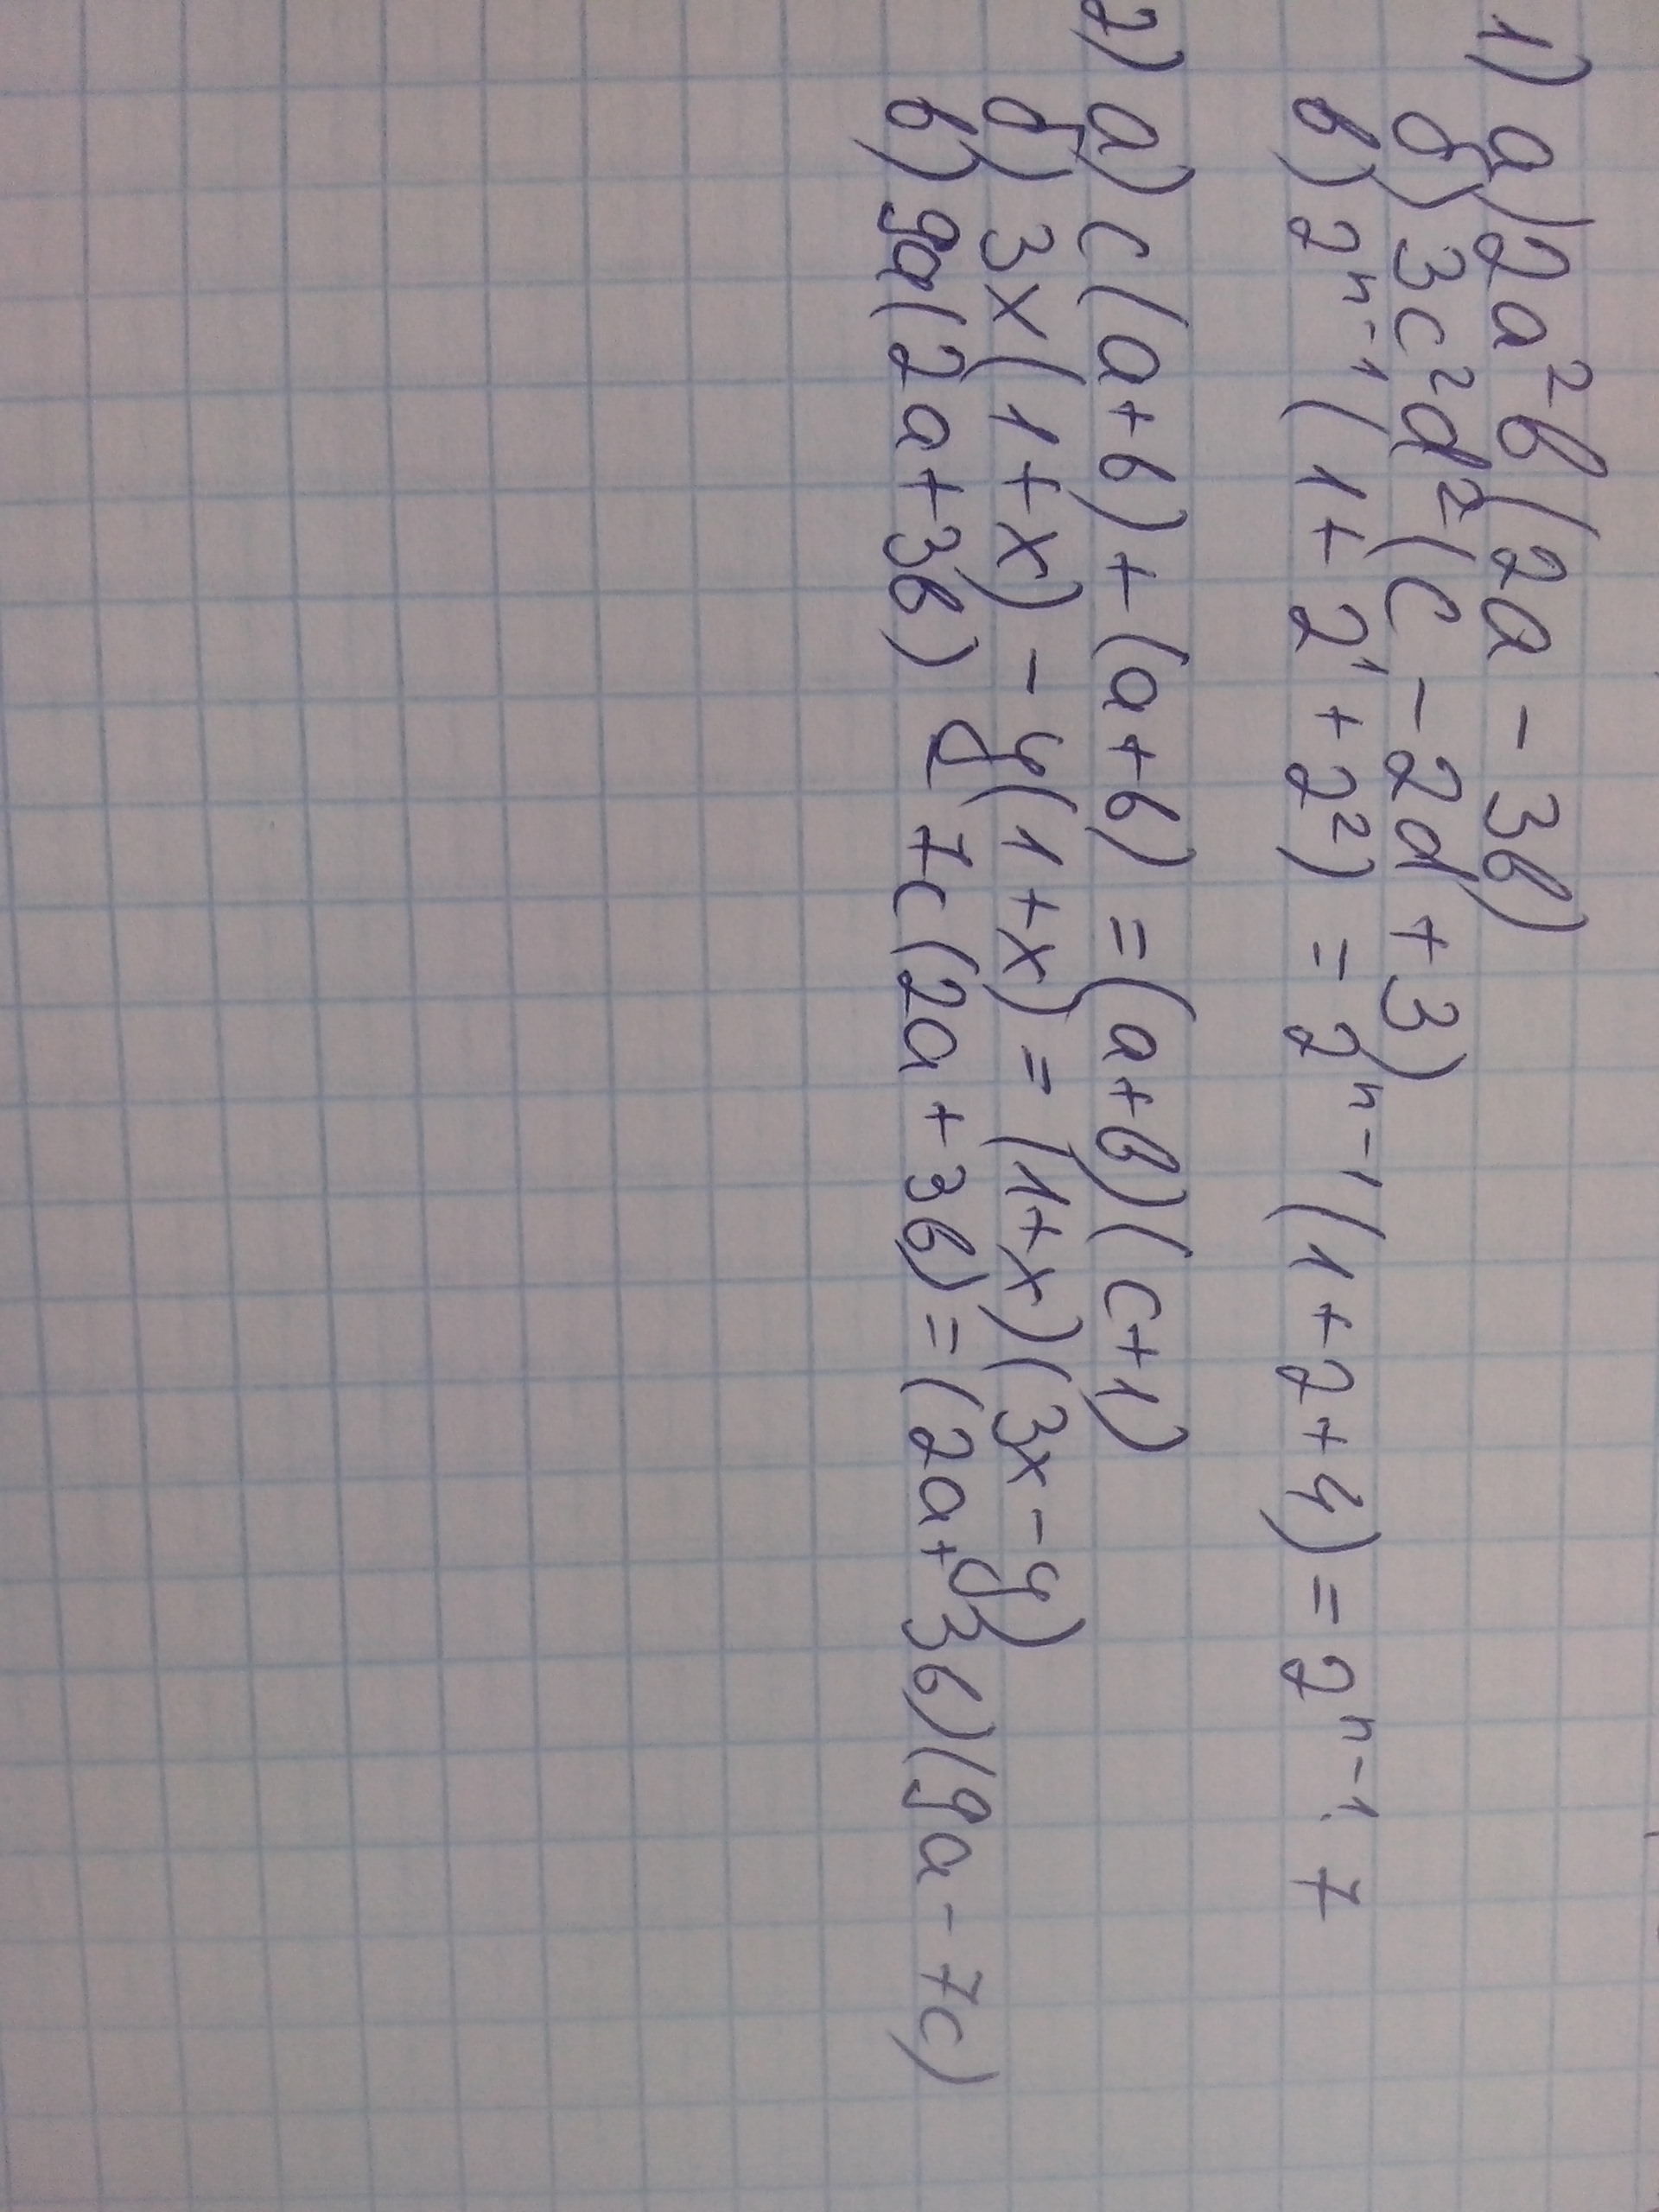 1) а) 2a²b(2a - 3b)
б) 3c²d²(c - 2d + 3)
в) 2ⁿ⁻¹(1 + 2¹ + 2²) = 2ⁿ⁻¹(1 + 2 + 4) = 2ⁿ⁻¹ · 7
2) а) c(a+b) + (a+b) = (a+b)(c+1)
б) 3x(1+x) - y(1+x) = (1+x)(3x - y)
в) 9a(2a+3b) - 7c(2a + 3b) = (2a+3b)(9a - 7c)